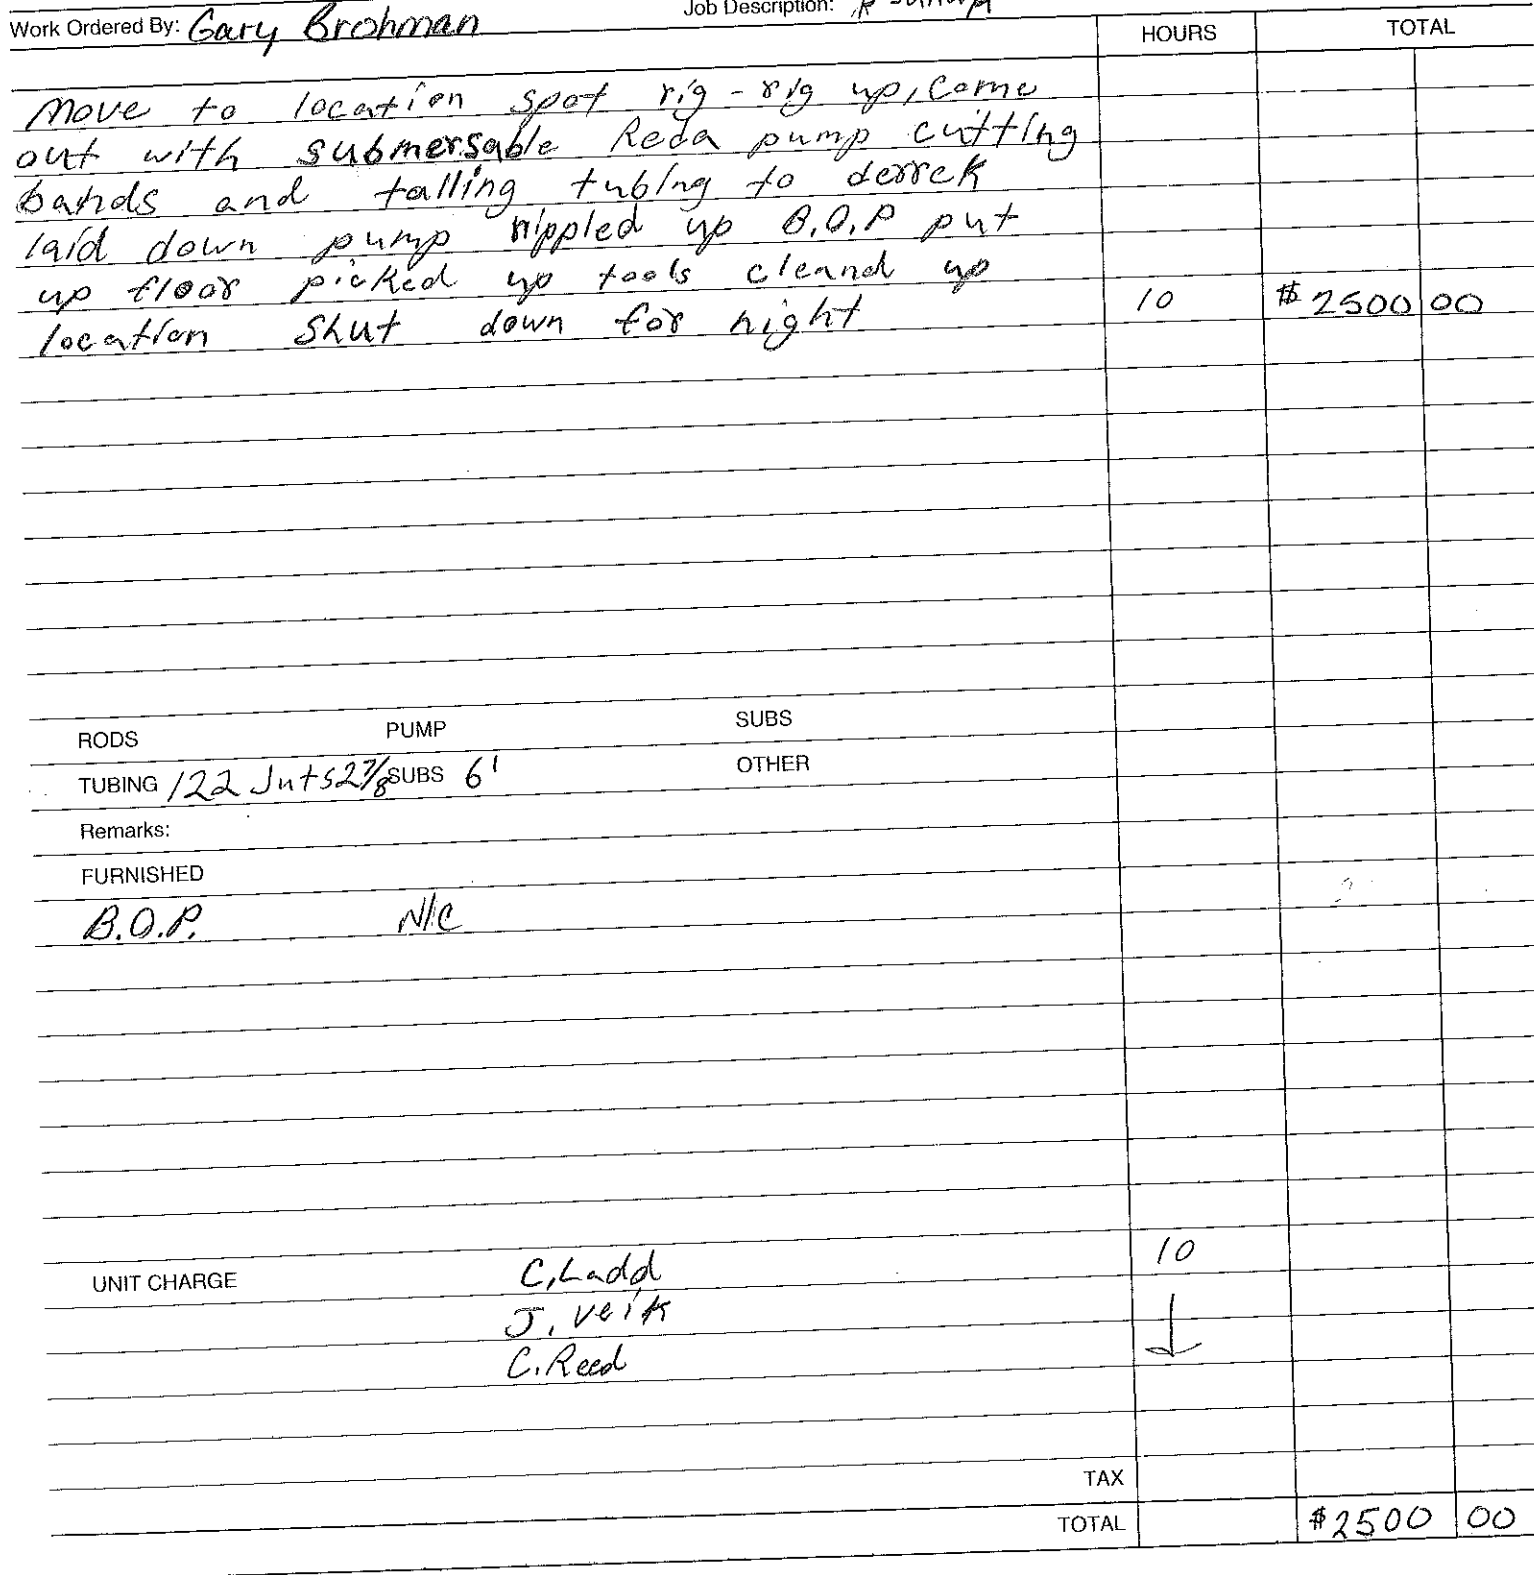 Work Ordered By: Gary Brohman Job Description:
HOURS TOTAL
Move to location spot rig - rig up, come
out with submersable Reda pump cutting
bands and talling tubing to derrek
laid down pump nippled up B.O.P put
up floor picked up tools cleand up
location Shut down for night 10 $2500 00
RODS PUMP SUBS
TUBING 122 Jnts 2 7/8 SUBS 6' OTHER
Remarks:
FURNISHED
B.O.P. N/C
UNIT CHARGE C. Ladd 10
J. Veik
C. Reed
TAX
TOTAL $2500 00